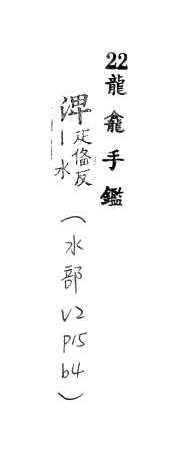 22龍龕手鑑
渒疋俻反
丨水
(水部V2P15b4)